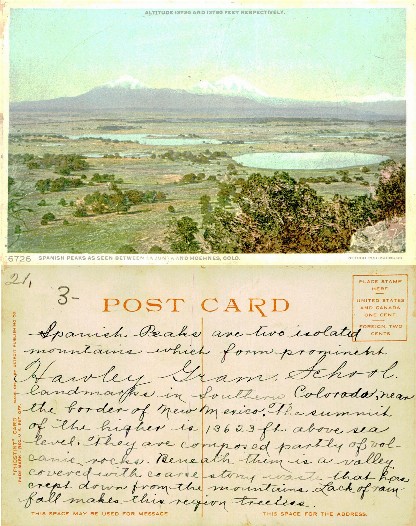 ALTITUDE 12720 AND 13720 FEET RESPECTIVELY.
6726 SPANISH PEAKS AS SEEN BETWEEN LA JUNTA AND HOEHNES, COLO.
21,
3-
POST CARD
PLACE STAMP
HERE
UNITED STATES
AND CANADA
ONE CENT
FOREIGN TWO
CENTS
Spanish Peaks are two isolated
mountains which form prominent
Hawley Gram. School
landmarks in Southern Colorado, near
the border of New Mexico. The summit
of the higher is 13623 ft. above sea
level. They are composed partly of vol-
canic rocks. Beneath them is a valley
covered with coarse stony waste that has
crept down from the mountains. Lack of rain-
fall makes this region treeless.
THIS SPACE MAY BE USED FOR MESSAGE.
THIS SPACE FOR THE ADDRESS.